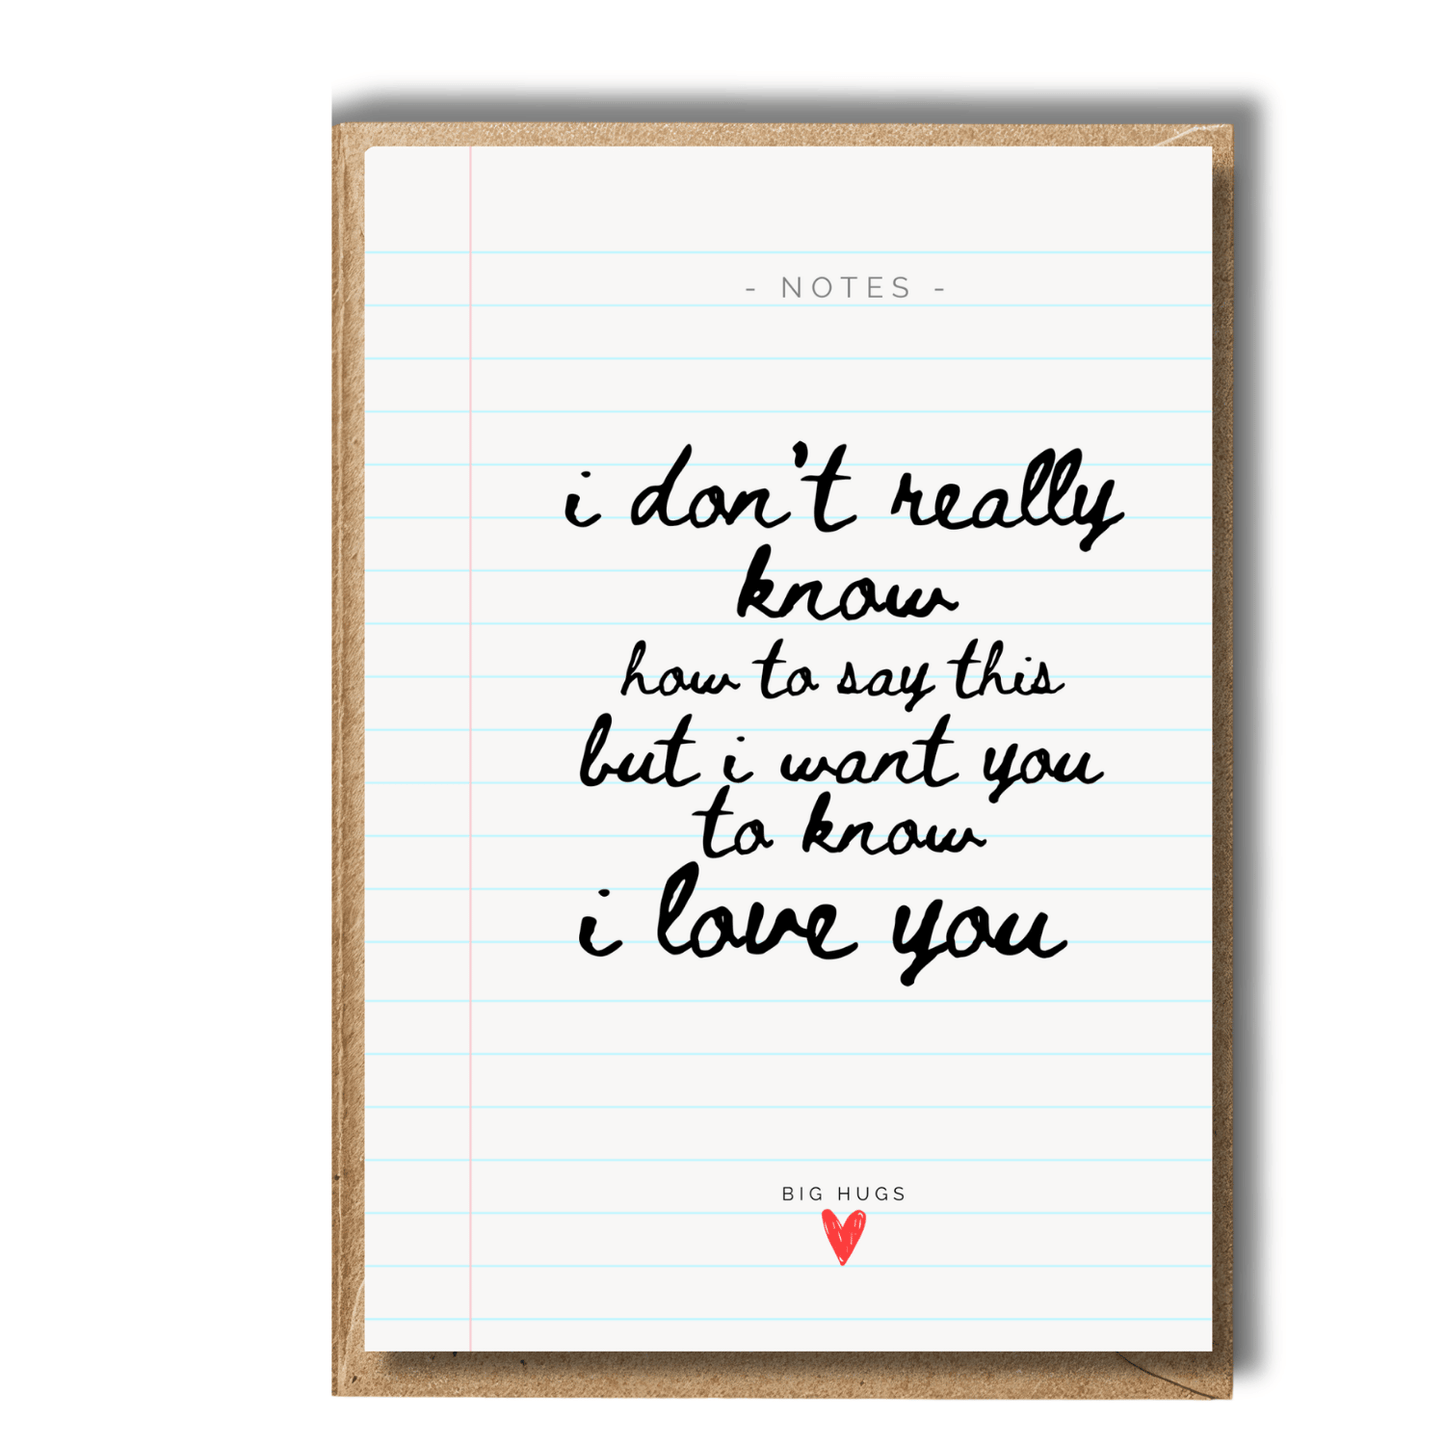 - NOTES -
i don't really
know
how to say this
but i want you
to know
i love you
BIG HUGS